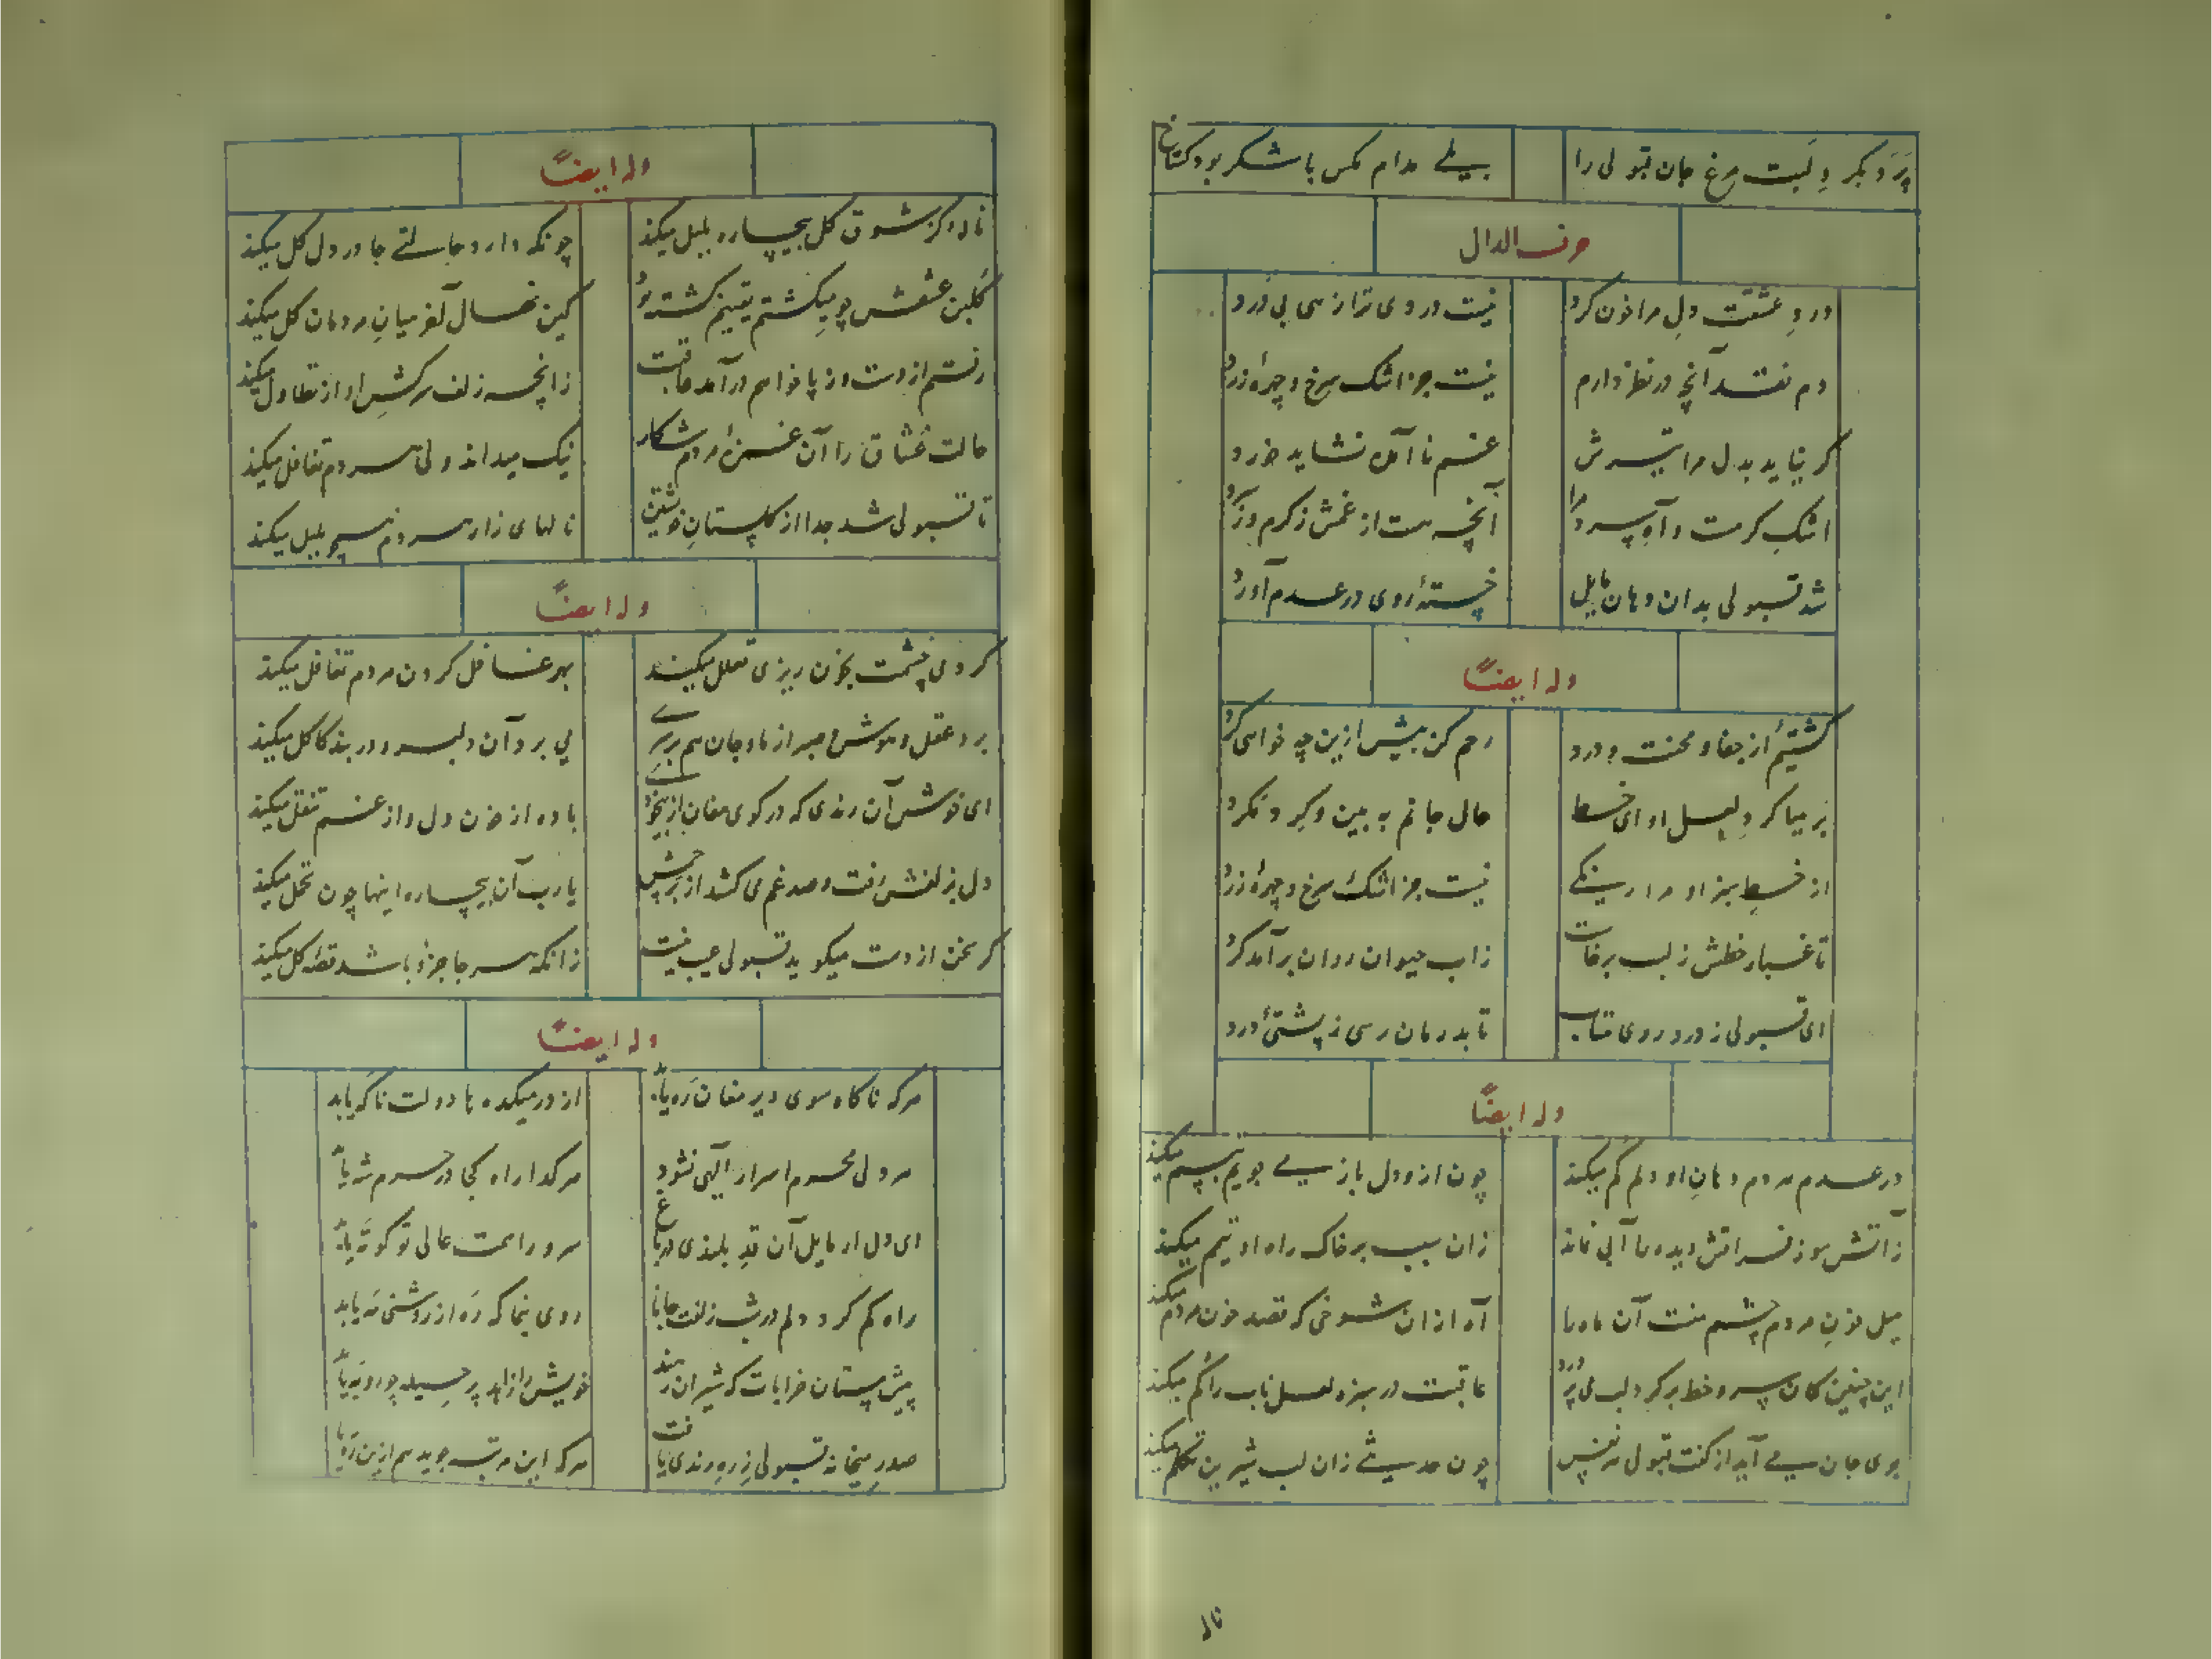 پرد بگرد لبت مرغ جان قبولی را بلے مدام مکس با شکر بود کستاخ
حرف الدال
درد عشقت دل مرا خون کرد نیست دردی ترا زهی بی درد
دم نقد آنچه در نظر دارم نیست جز اشک سرخ و چهرهٔ زرد
کر نیاید بدل مرا تیرش غم نا آمده نشاید خورد
اشک کرمست و آه سرد مرا آنچه هست از غمش ز کرم و ز سرد
شد قبولی بدان دهان مایل خسته روی در عدم آورد
وله ایضاً
کشتیم از جفا و محنت و درد رحم کن بیش ازین چه خواهی کرد
بر میا کرد لعل او ای خط حال جانم به بین و کرد مکرد
از خط سبز او مرا رنکے نیست جز اشک سرخ و چهرهٔ زرد
تا غبار خطش ز لب برخاست زاب حیوان روان برآمد کرد
ای قبولی ز درد روی متاب تا بدرمان رسی ز پشتیٔ درد
وله ایضاً
در عدم هر دم دهان او دلم کم میکند چون ازو دل باز مے جویم تبسم میکند
ز آتش سوز فراقش دیده را آبی نماند زان سبب بر خاک راه او تیمم میکند
میل خون مردم چشم منست آن ماه را آه ازان شوخی که قصد خون مردم میکند
این چنین کان سرو خط بر کرد لب می پرورد عاقبت در سبزه لعل ناب را کم میکند
بوی جان مے آید از کفت قبولی هر نفس چون حدیثے زان لب شیرین تکلم میکند
ناله
وله ایضاً
ناله کز شوق کل بیچاره بلبل میکند چونکه دارد حالتے جا در دل کل میکند
کلبن عشقش چو میکشتم یقینم کشته بود کین نهال آخر میان مردمان کل میکند
رفتم از دست و ز پا خواهم درآمد عاقبت زانچه زلف سرکش او از تطاول میکند
حالت عشاق را آن غمزهٔ مردم شکار نیک میداند ولی هر دم تغافل میکند
تا قبولی شد جدا از کلستان خویشتن نالهای زار هر دم همچو بلبل میکند
وله ایضاً
کر دمی چشمت بخون ریزی تعلل میکند بهر غافل کردن مردم تغافل میکند
برد عقل و هوش و صبر از ما و جان هم بر سرے پی برد آن دلبر و در بند کاکل میکند
ای خوش آن رندی که در کوی مغان از بیخودے باده از خون دل و از غم تنقل میکند
دل بزلفش رفت و صد غم می کشد از هر خمش یا رب آن بیچاره اینها چون تحمل میکند
کر سخن از دست میکوید قبولی عیب نیست زانکه هر جا جزو باشد قصهٔ کل میکند
وله ایضاً
هر که ناکاه سوی دیر مغان ره یابد از در میکده ها دولت ناکه یابد
هر دلی محرم اسرار الهی نشود هر کدا راه کجا در حرم شه یابد
ای دل ار مایل آن قد بلندی دریاب سرو را همت عالی تو کوته یابد
راه کم کرد دلم در شب زلفت جانا روی بنما که ره از روشنی مه یابد
پیش مستان خرابات که شیران رهند خویش را زاهد پر حیله چو روبه یابد
صدر میخانه قبولی ز ره رندی یافت هر که این مرتبه جوید هم ازین ره یابد